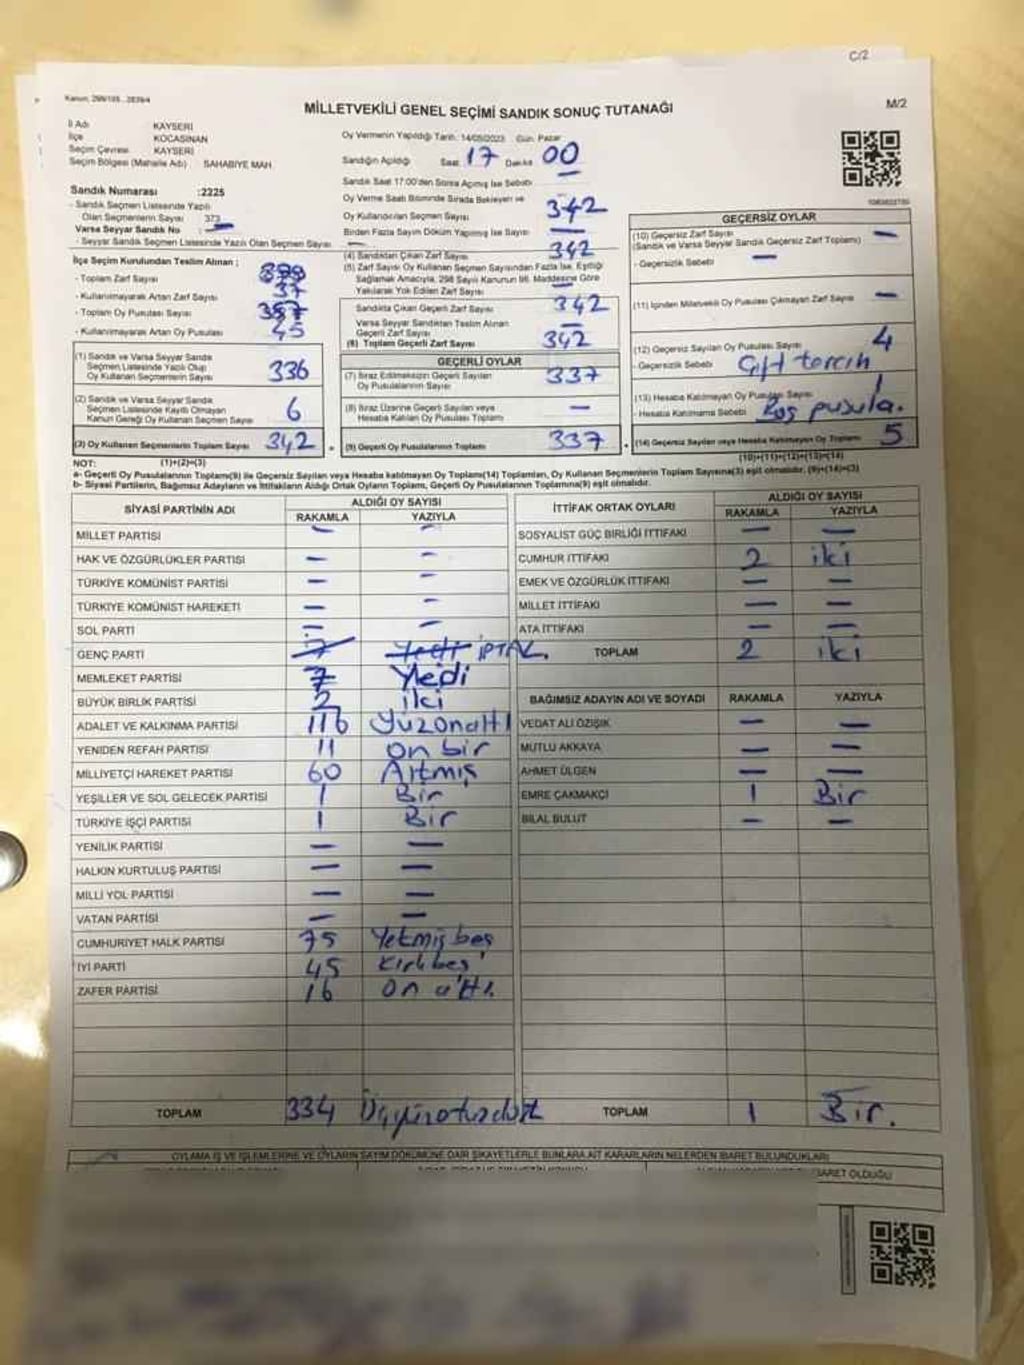 C/2
MİLLETVEKİLİ GENEL SEÇİMİ SANDIK SONUÇ TUTANAĞI
M/2
İl Adı KAYSERİ
İlçe KOCASİNAN
Seçim Çevresi KAYSERİ
Seçim Bölgesi (Mahalle Adı) SAHABİYE MAH.
Sandık Numarası :2225
- Sandık Seçmen Listesinde Yazılı
Olan Seçmenlerin Sayısı 373
Varsa Seyyar Sandık No : —
- Seyyar Sandık Seçmen Listesinde Yazılı Olan Seçmen Sayısı —
İlçe Seçim Kurulundan Teslim Alınan :
- Toplam Zarf Sayısı
- Kullanılmayarak Artan Zarf Sayısı 37
- Toplam Oy Pusulası Sayısı 387
- Kullanılmayarak Artan Oy Pusulası 45
(1) Sandık ve Varsa Seyyar Sandık
Seçmen Listesinde Yazılı Olup
Oy Kullanan Seçmenlerin Sayısı 336
(2) Sandık ve Varsa Seyyar Sandık
Seçmen Listesinde Kayıtlı Olmayan
Kanun Gereği Oy Kullanan Seçmen Sayısı 6
(3) Oy Kullanan Seçmenlerin Toplam Sayısı 342
(1)+(2)=(3)
Oy Vermenin Yapıldığı Tarih: 14/05/2023 Gün: Pazar
Sandığın Açıldığı Saat: 17 Dakika 00
Sandık Saat 17:00'den Sonra Açılmış İse Sebebi —
Oy Verme Saati Bitiminde Sırada Bekleyen ve
Oy Kullandırılan Seçmen Sayısı 342
Birden Fazla Sayım Döküm Yapılmış İse Sayısı —
(4) Sandıktan Çıkan Zarf Sayısı 342
(5) Zarf Sayısı Oy Kullanan Seçmen Sayısından Fazla İse, Eşitliği
Sağlamak Amacıyla, 298 Sayılı Kanunun 98. Maddesine Göre
Yakılarak Yok Edilen Zarf Sayısı —
Sandıkta Çıkan Geçerli Zarf Sayısı 342
Varsa Seyyar Sandıktan Teslim Alınan
Geçerli Zarf Sayısı —
(6) Toplam Geçerli Zarf Sayısı 342
GEÇERLİ OYLAR
(7) İtiraz Edilmeksizin Geçerli Sayılan
Oy Pusulalarının Sayısı 337
(8) İtiraz Üzerine Geçerli Sayılan veya
Hesaba Katılan Oy Pusulaları Toplamı —
(9) Geçerli Oy Pusulalarının Toplamı 337
GEÇERSİZ OYLAR
(10) Geçersiz Zarf Sayısı —
(Sandık ve Varsa Seyyar Sandık Geçersiz Zarf Toplamı)
- Geçersizlik Sebebi —
(11) İçinden Milletvekili Oy Pusulası Çıkmayan Zarf Sayısı —
(12) Geçersiz Sayılan Oy Pusulası Sayısı 4
- Geçersizlik Sebebi Çift tercih
(13) Hesaba Katılmayan Oy Pusulası Sayısı 1
- Hesaba Katılmama Sebebi Boş pusula.
(14) Geçersiz Sayılan veya Hesaba Katılmayan Oy Toplamı 5
(10)+(11)+(12)+(13)=(14)
NOT:
a- Geçerli Oy Pusulalarının Toplamı(9) ile Geçersiz Sayılan veya Hesaba katılmayan Oy Toplamı(14) Toplamları, Oy Kullanan Seçmenlerin Toplam Sayısına(3) eşit olmalıdır. (9)+(14)=(3)
b- Siyasi Partilerin, Bağımsız Adayların ve İttifakların Aldığı Ortak Oyların Toplamı, Geçerli Oy Pusulalarının Toplamına(9) eşit olmalıdır.
SİYASİ PARTİNİN ADI ALDIĞI OY SAYISI
RAKAMLA YAZIYLA
MİLLET PARTİSİ — —
HAK VE ÖZGÜRLÜKLER PARTİSİ — —
TÜRKİYE KOMÜNİST PARTİSİ — —
TÜRKİYE KOMÜNİST HAREKETİ — —
SOL PARTİ — —
GENÇ PARTİ 7 Yedi İPTAL.
MEMLEKET PARTİSİ 7 Yedi
BÜYÜK BİRLİK PARTİSİ 2 iki
ADALET VE KALKINMA PARTİSİ 116 Yüzonaltı
YENİDEN REFAH PARTİSİ 11 on bir
MİLLİYETÇİ HAREKET PARTİSİ 60 Altmış
YEŞİLLER VE SOL GELECEK PARTİSİ 1 Bir
TÜRKİYE İŞÇİ PARTİSİ 1 Bir
YENİLİK PARTİSİ — —
HALKIN KURTULUŞ PARTİSİ — —
MİLLİ YOL PARTİSİ — —
VATAN PARTİSİ — —
CUMHURİYET HALK PARTİSİ 75 Yetmiş beş
İYİ PARTİ 45 Kırkbeş
ZAFER PARTİSİ 16 on altı.
TOPLAM 334 Üçyüzotuzdört
İTTİFAK ORTAK OYLARI ALDIĞI OY SAYISI
RAKAMLA YAZIYLA
SOSYALİST GÜÇ BİRLİĞİ İTTİFAKI — —
CUMHUR İTTİFAKI 2 iki
EMEK VE ÖZGÜRLÜK İTTİFAKI — —
MİLLET İTTİFAKI — —
ATA İTTİFAKI — —
TOPLAM 2 iki
BAĞIMSIZ ADAYIN ADI VE SOYADI RAKAMLA YAZIYLA
VEDAT ALİ ÖZIŞIK — —
MUTLU AKKAYA — —
AHMET ÜLGEN — —
EMRE ÇAKMAKÇI 1 Bir
BİLAL BULUT — —
TOPLAM 1 Bir.
OYLAMA İŞ VE İŞLEMLERİNE VE OYLARIN SAYIM DÖKÜMÜNE DAİR ŞİKAYETLERLE BUNLARA AİT KARARLARIN NELERDEN İBARET BULUNDUKLARI